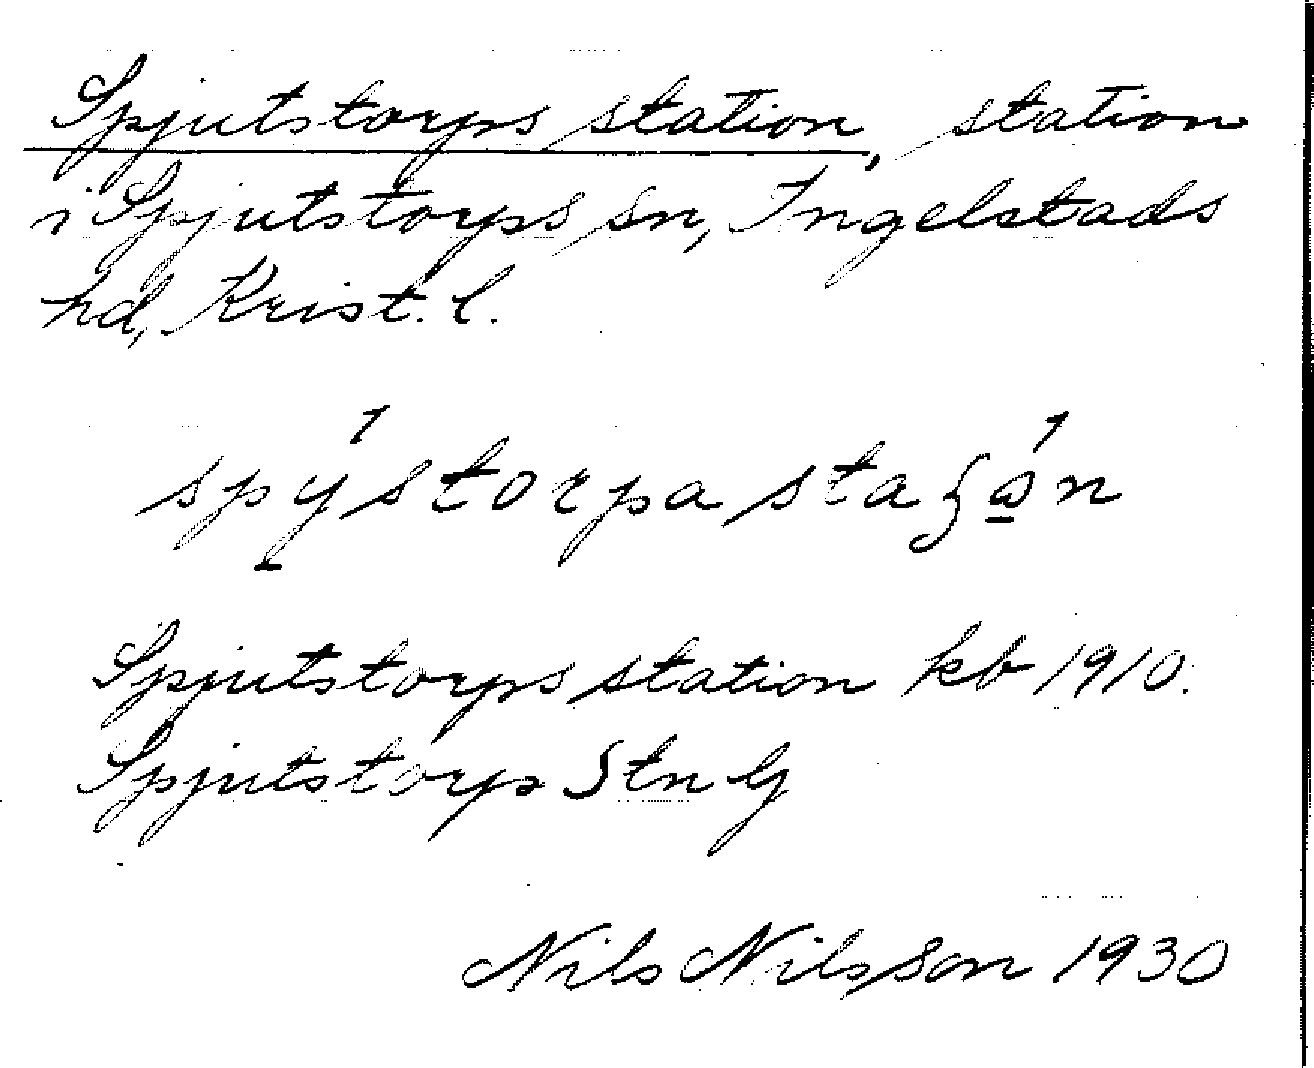 Spjutstorps station, station
i Spjutstorps sn, Ingelstads
hd, Krist. l.
spý̠storpa staʒó̠n
Spjutstorps station kb 1910.
Spjutstorp Stn G
Nils Nilsson 1930